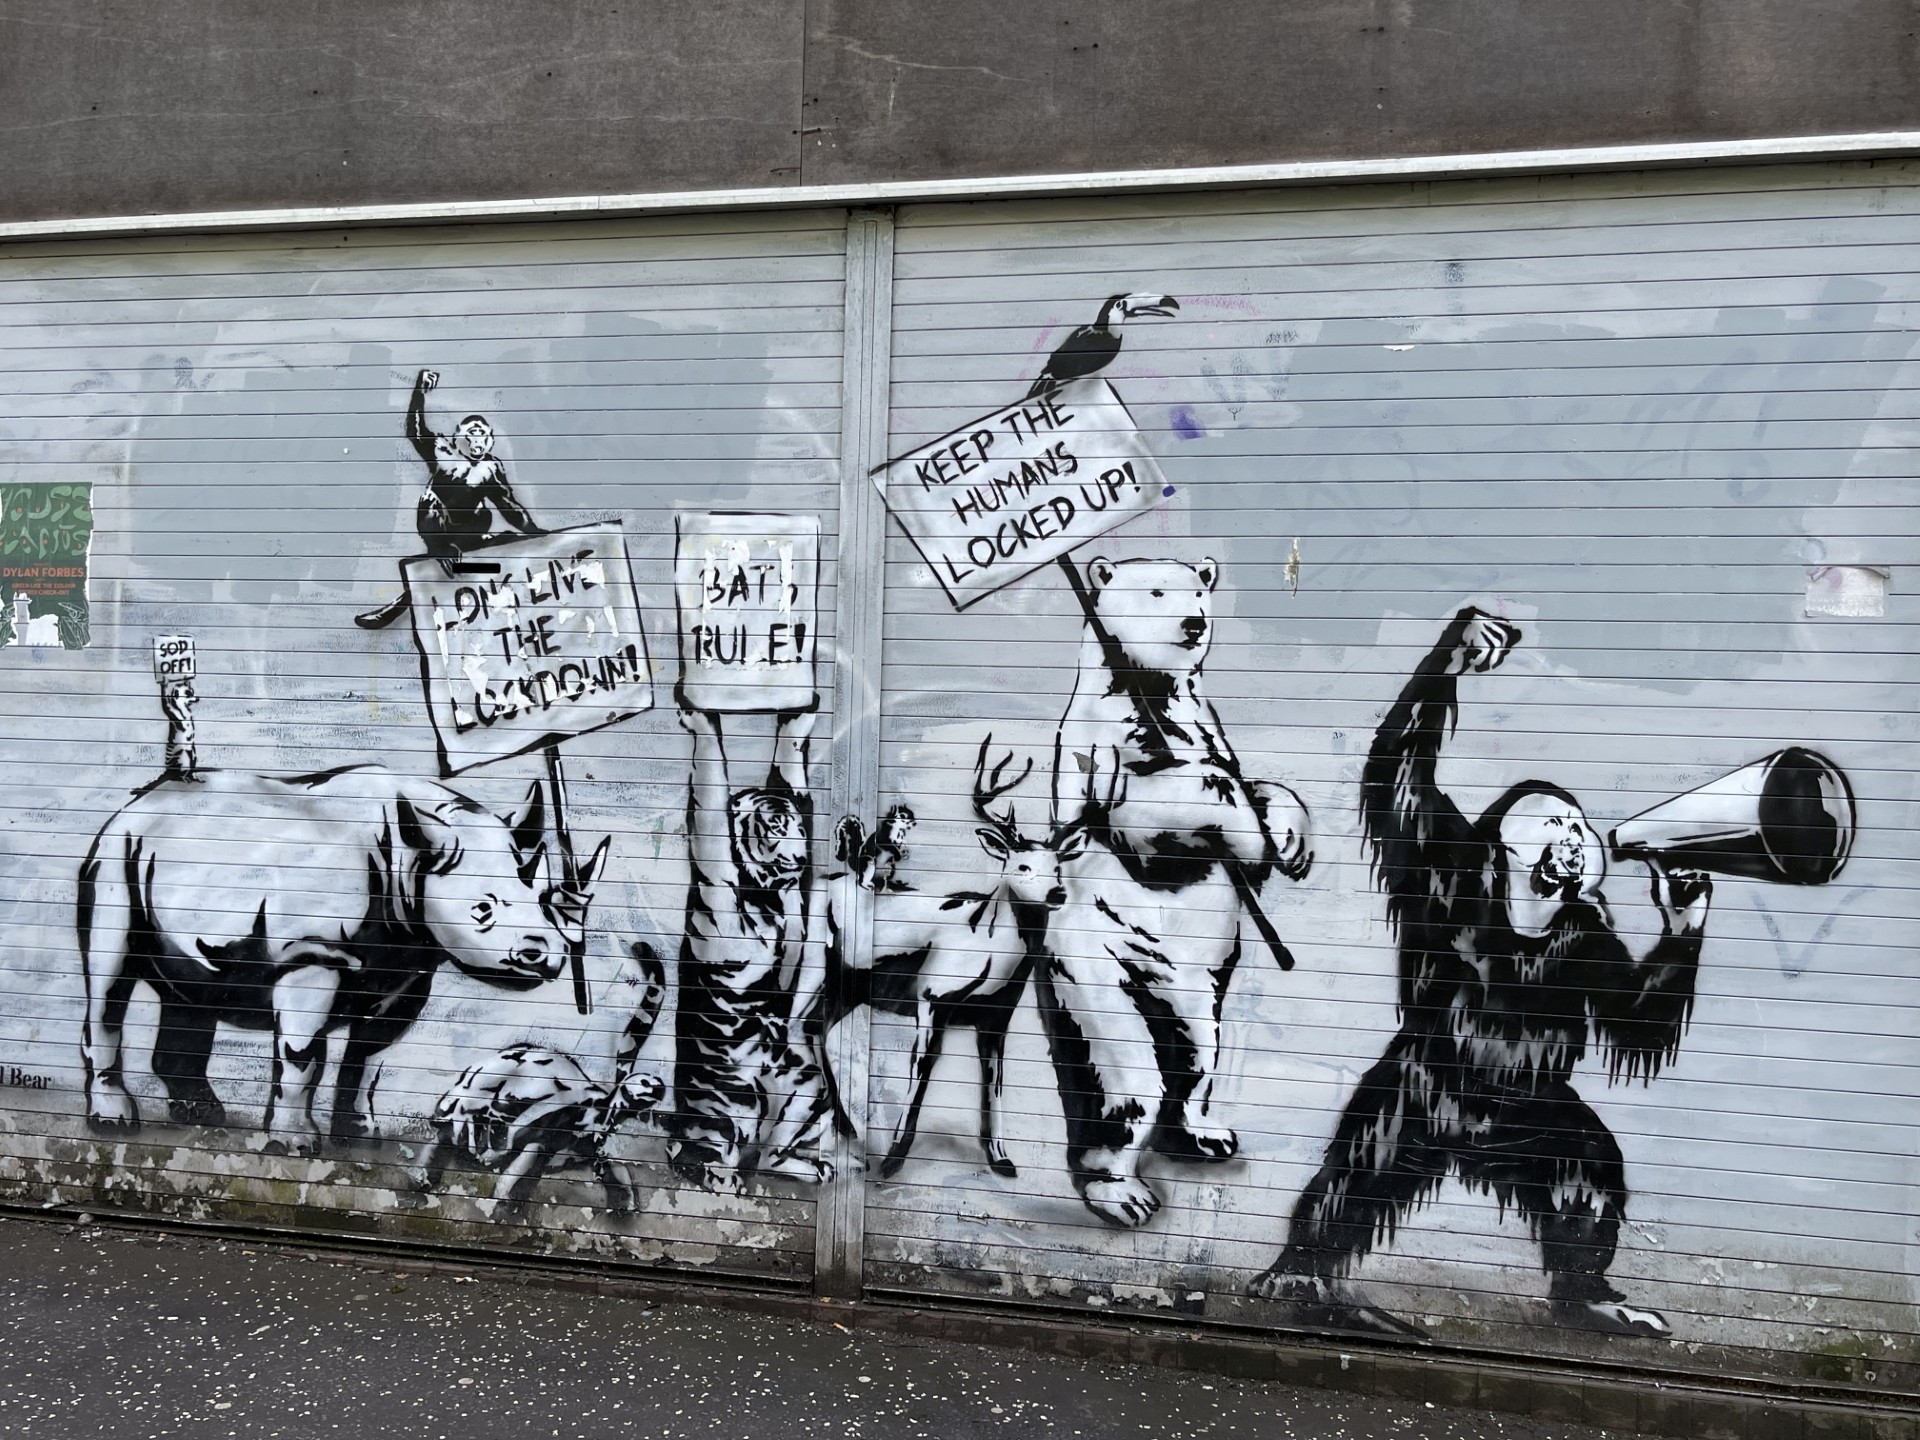 DYLAN FORBES
SOD
OFF!
LONG LIVE
THE
LOCKDOWN!
BATS
RULE!
KEEP THE
HUMANS
LOCKED UP!
Bear